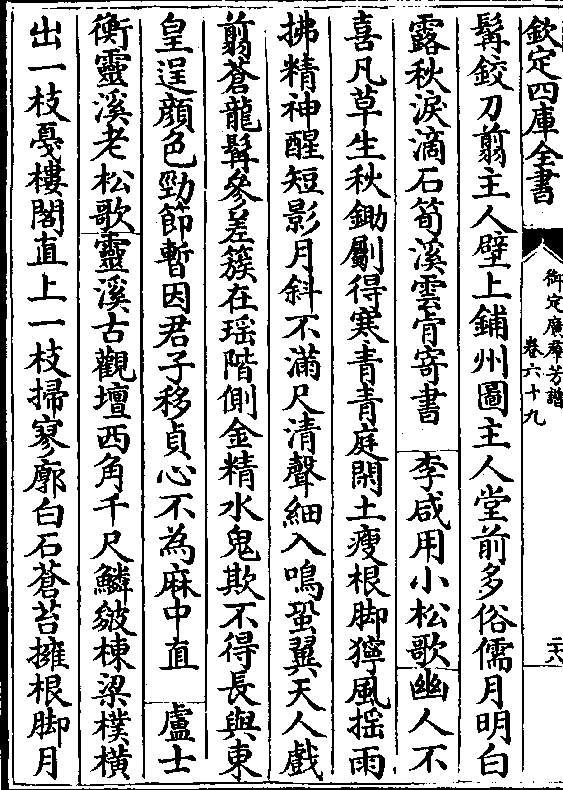 欽定四庫全書
御定廣羣芳譜
卷六十九
二六
髯鉸刀翦主人壁上鋪州圖主人堂前多俗儒月明白
露秋淚滴石筍溪雲肯寄書　李咸用小松歌幽人不
喜凡草生秋鋤劚得寒青青庭閑土瘦根脚獰風揺雨
拂精神醒短影月斜不滿尺清聲細入鳴蛩翼天人戲
翦蒼龍髯參差簇在瑶階側金精水鬼欺不得長與東
皇逞顔色勁節暫因君子移貞心不為麻中直　盧士
衡靈溪老松歌靈溪古觀壇西角千尺鱗皴棟梁樸橫
出一枝戞樓閣直上一枝掃寥廓白石蒼苔擁根脚月